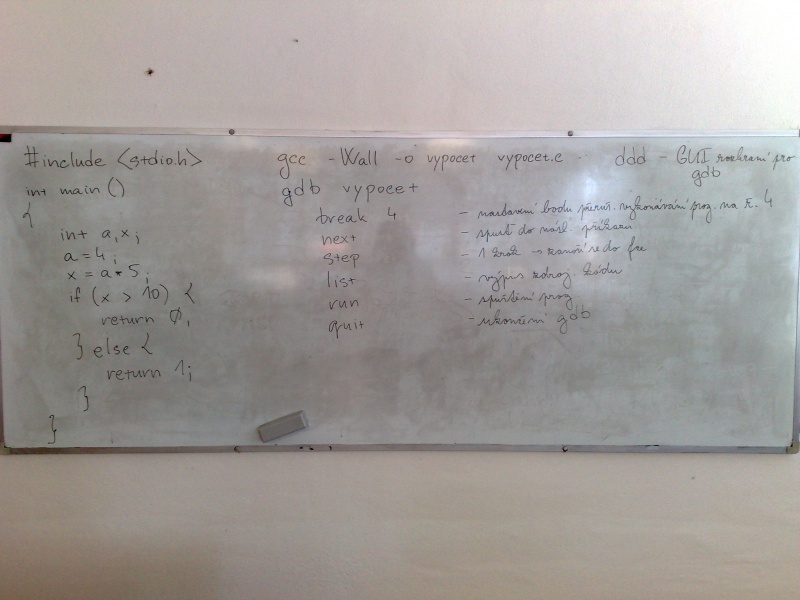 #include <stdio.h>
int main ()
{
int a,x;
a=4;
x = a*5;
if (x > 10) {
return 0;
} else {
return 1;
}
}
gcc -Wall -o vypocet vypocet.c
ddd - GUI rozhraní pro
gdb
gdb vypocet
break 4 - nastavení bodu přeruš. vykonávání prog. na ř. 4
next - spusť do násl. příkazu
step - 1 krok → zanoří se do fce
list - výpis zdroj. kódu
run - spuštění prog.
quit - ukončení gdb